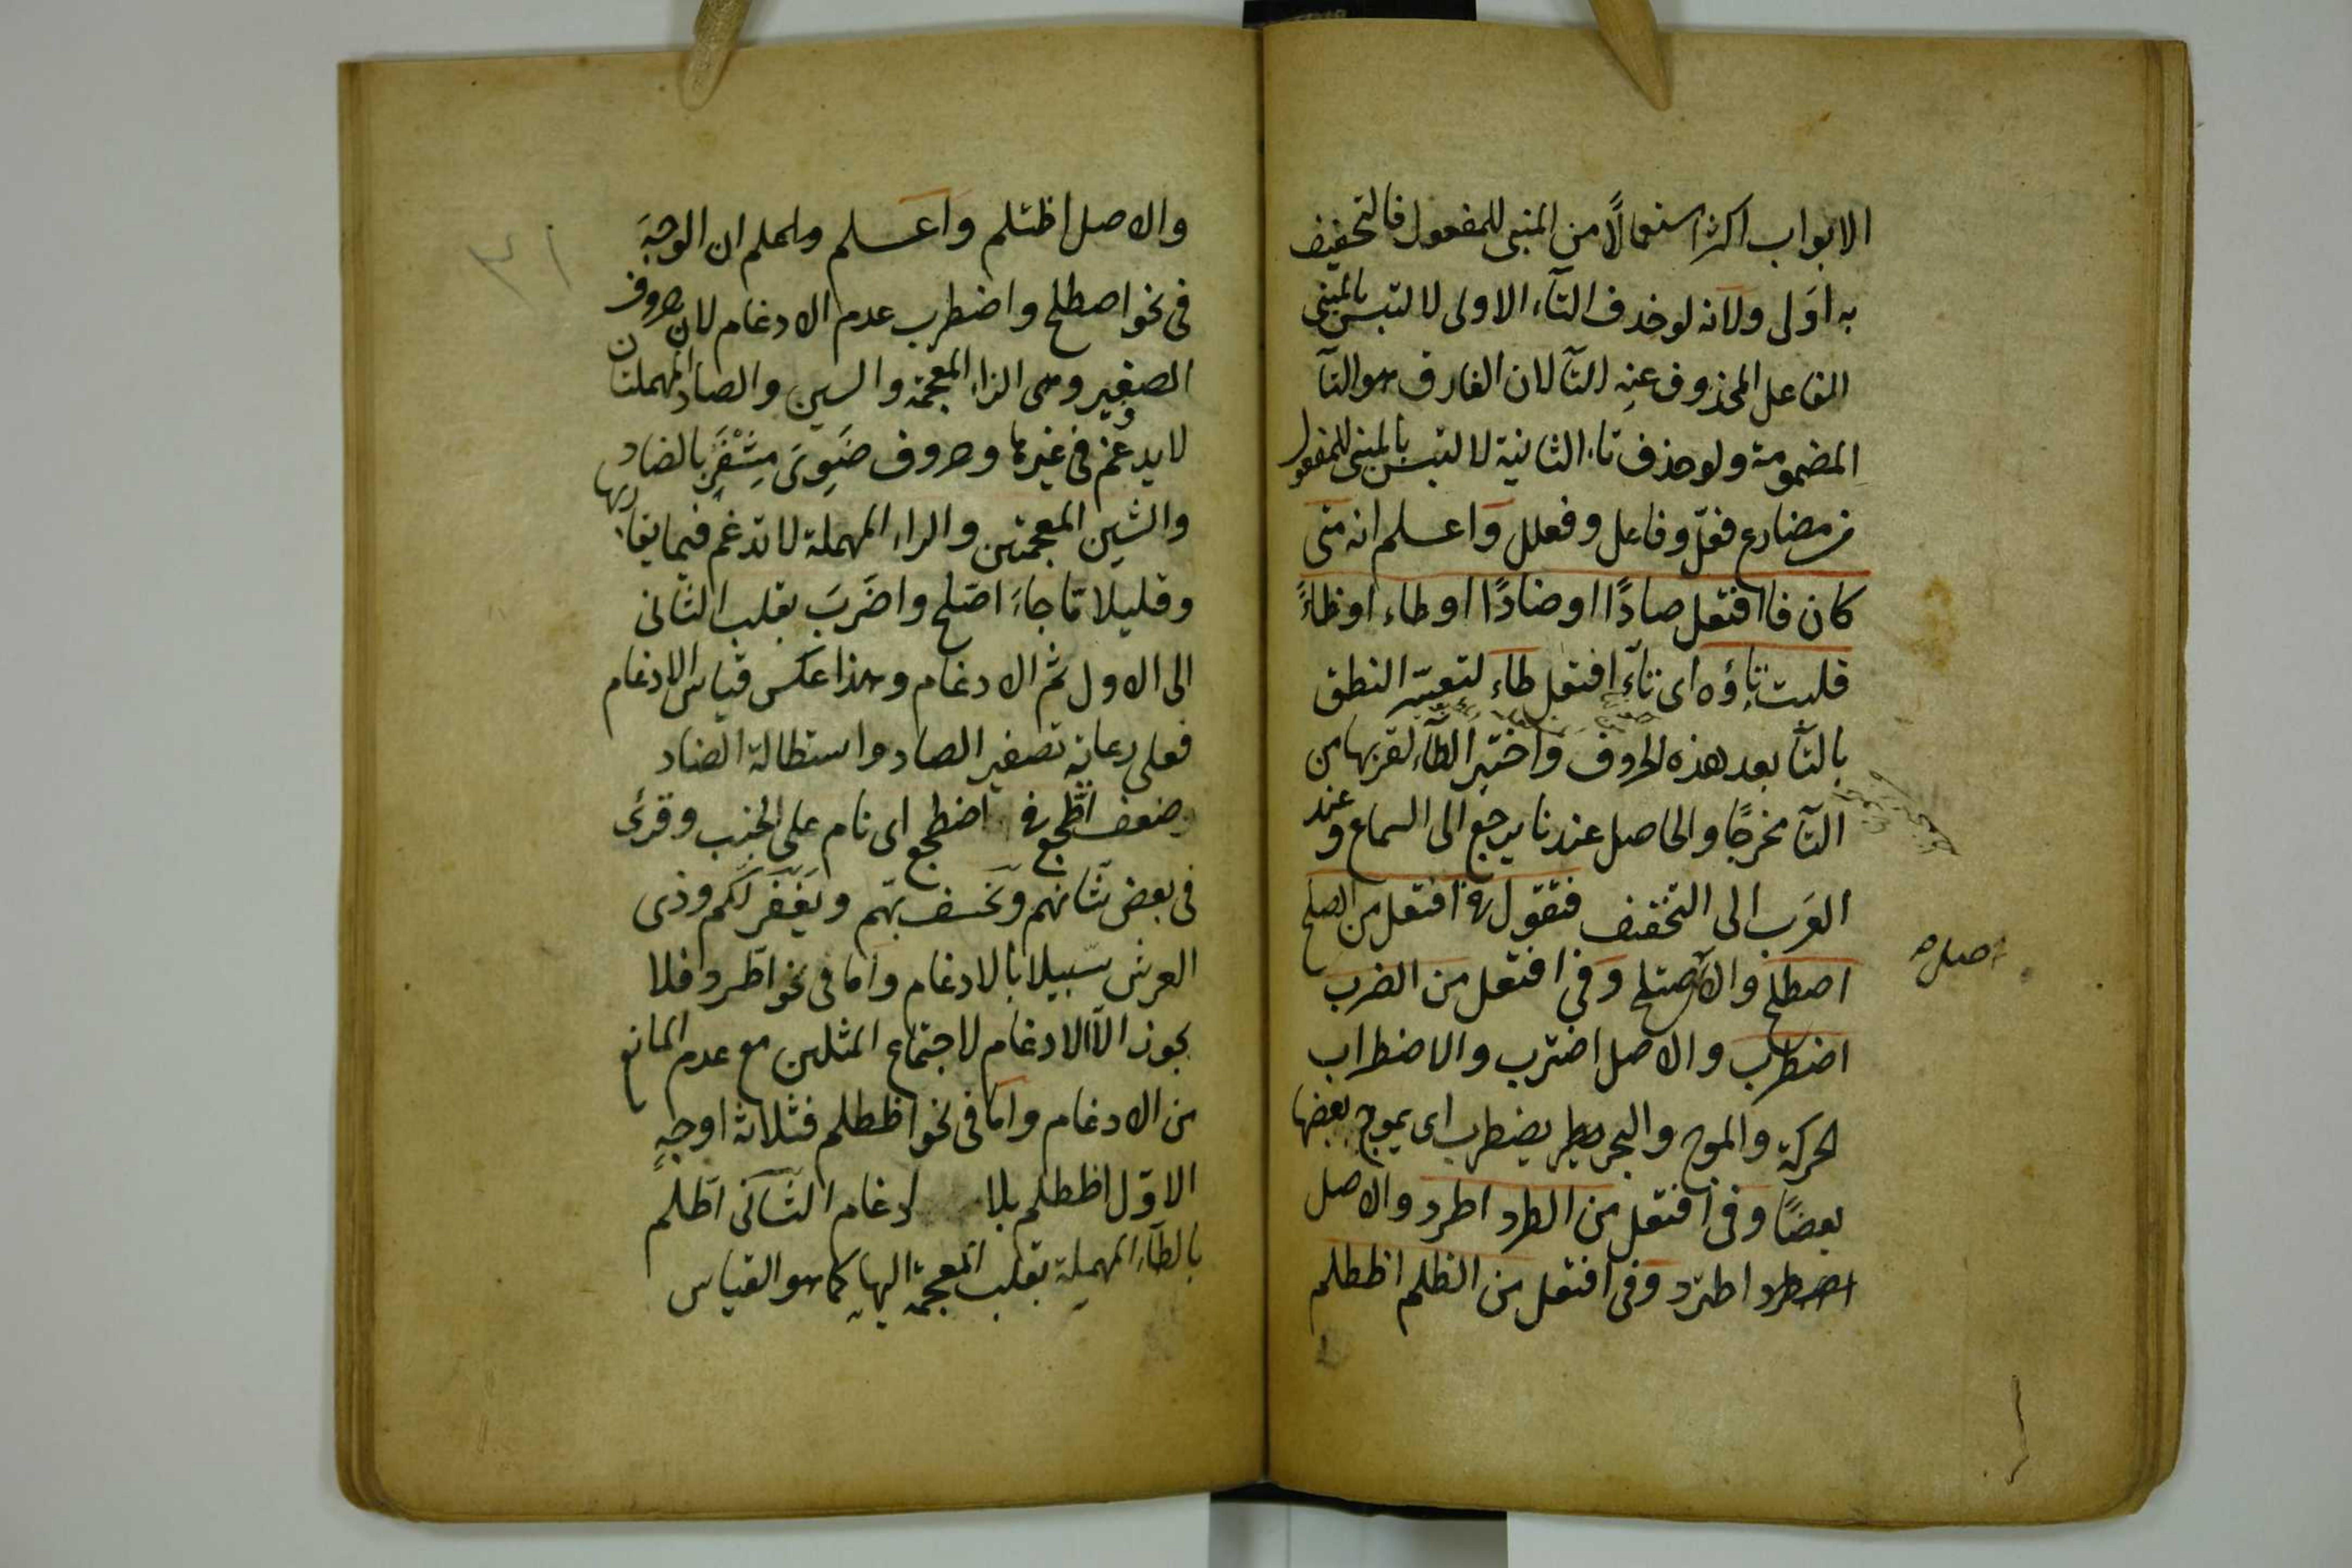 الابواب اكثر استعمالًا من المبنى للمفعول فالتخفيف
به اَولى ولانه لو حذف التآء الاولى لالتبس بالمبنى
الفاعل المحذوف عنِه التآ لان الفارق هو التآ
المضمومة ولو حذف تاء الثانية لالتبس بالمبنى للمفعول
من مضارع فعّل وفاعل وفعلل واعلم انه متى
كان فا افتعل صادًا او ضادًا او طاء او ظاءً
قلبت تاؤه اى تآء افتعل طاء لتعسّر النطق
بالتآ بعد هذه الحروف واختير الطآء لقربها من
التآ مخرجًا والحاصل عندنا يرجع الى السماع وعند
العَرب الى التخفيف فتقول فى افتعل من الصلح
اصطلح والاصل اصتلح وفى افتعل من الضرب
اصله
اضطرب والاصل اضترب والاضطراب
الحركة والموج والبحر يضطرب اى يموج بعضها
بعضًا وفى افتعل من الطرد اطرد والاصل
اطترد وفى افتعل من الظلم اظطلم
٣١
والاصل اظتلم واعلم ان الوجهَ
فى نحو اصطلح واضطرب عدم الادغام لان حروف
الصفير وهى الزاء المعجمة والسين والصاد المهملتان
لا يدغم فى غيرها وحروف ضَوِىَ مِشْفَر بالضاد
والشين المعجمتين والراء المهملة لا تدغم فيما يقاربها
وقليلا ما جاءَ اصّلح واضّربَ بقلب الثانى
الى الاول ثم الادغام وهذا عكس قياس الادغام
فعلى رعاية تصفير الصاد واستطالة الضاد
وضعف اطّجع فى اضطجع اى نام على الجنب وقرئ
فى بعض شّانهم ونخسف بّهم ويغفر لّكم وذى
العرش سّبيلا بالادغام واما فى نحو اطّرد فلا
يجوز الّا الادغام لاجتماع المثلين مع عدم المانع
من الادغام واما فى نحو اظطلم فثلاثة اوجهٍ
الاوّل اظطلم بلا ادغام الثانى اطّلم
بالطاء المهملة بقلب المعجمة اليها كما هو القياس